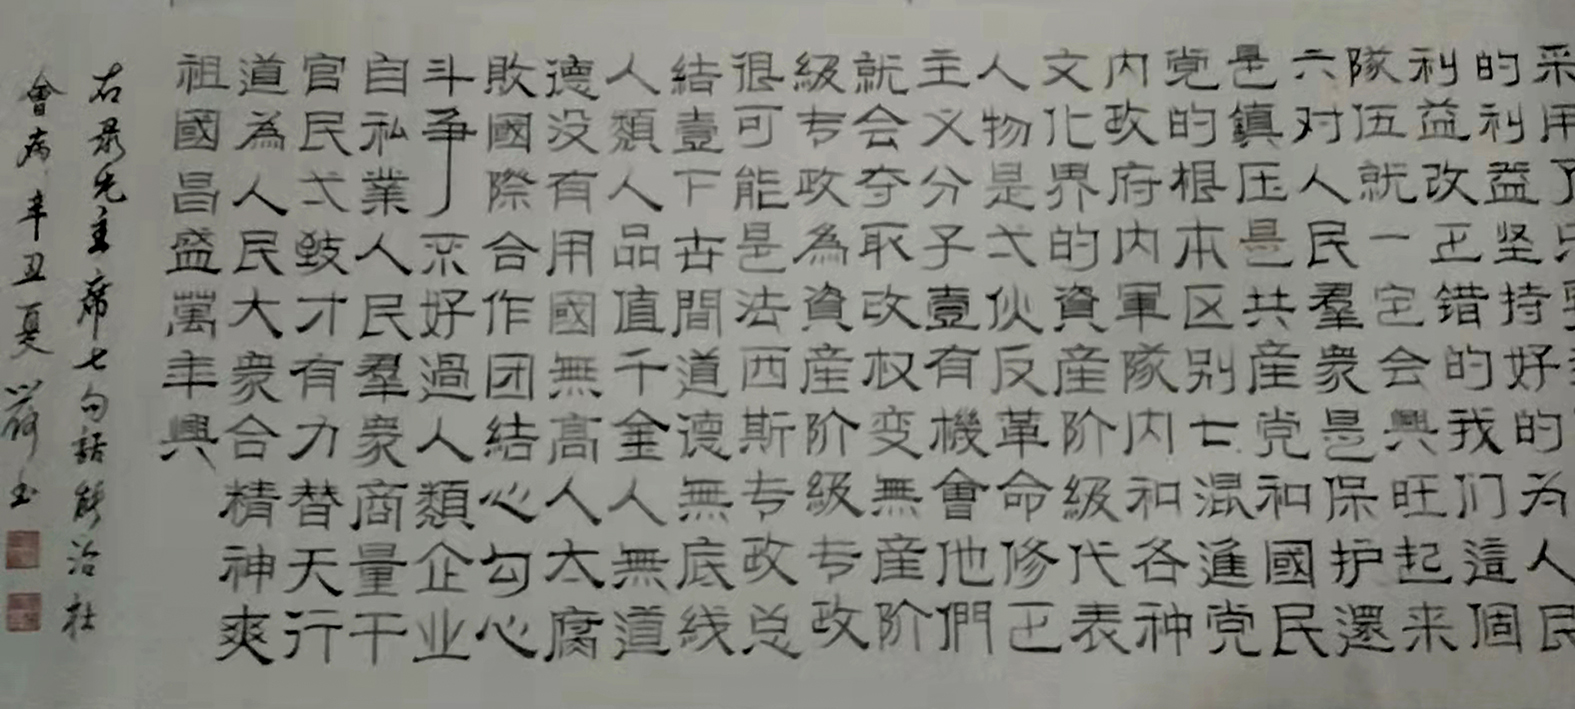 采用了只要
的利益坚持好的为人民
利益改正错的我们這個
隊伍就一定会興旺起来
六对人民羣衆是保护還
是鎮压是共産党和國民
党的根本区别七混進党
内政府内軍隊内和各种
文化界的資産阶级代表
人物是弍伙反革命修正
主义分子壹有機會他們
就会夺取改权变無産阶
級专政為資産阶級专政
很可能是法西斯专政总
結壹下古間道德無底线
人類人品值千金人無道
德没有用國無高人太腐
敗國際合作团結心勾心
斗争好過人類企业
自私業人民羣衆商量干
官民弌致才有力替天行
道為人民大衆合精神爽
祖國昌盛萬年興
右录先主席七句話能治社
會病辛丑夏书